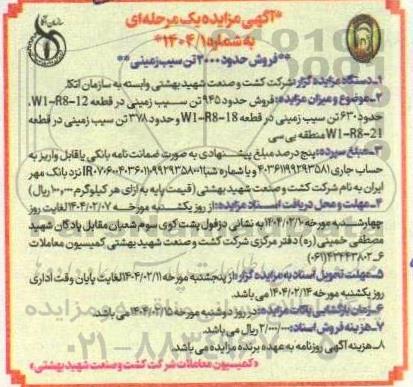 سازمان اتکا
*آگهی مزایده یک مرحله‌ای
به شماره ۱۴۰۴/۱*
**فروش حدود ۲۰۰۰ تن سیب‌زمینی**
۱_دستگاه مزایده گزار: شرکت کشت و صنعت شهید بهشتی وابسته به سازمان اتکا
۲_موضوع و میزان مزایده: فروش حدود ۹۴۵ تن سیب زمینی در قطعه W1-R8-12،
حدود ۶۳۰ تن سیب زمینی در قطعه W1-R8-18 و حدود ۳۷۸ تن سیب زمینی در قطعه
W1-R8-21 منطقه بی سی
۳_مبلغ سپرده: پنج درصد مبلغ پیشنهادی به صورت ضمانت نامه بانکی یا قابل واریز به
حساب جاری ۴۰۳۶۱۱۹۹۲۹۳۵۸۱ و یا شماره شبا IR نزد بانک مهر
ایران به نام شرکت کشت و صنعت شهید بهشتی (قیمت پایه به ازای هر کیلوگرم ریال)
۴_مهلت و محل دریافت اسناد مزایده: از روز یکشنبه مورخه ۱۴۰۴/۰۲/۰۷ لغایت روز
چهارشنبه مورخه ۱۴۰۴/۰۲/۱۰ به نشانی دزفول پشت کوی سوم شعبان مقابل پادگان شهید
مصطفی خمینی (ره) دفتر مرکزی شرکت کشت و صنعت شهید بهشتی کمیسیون معاملات
(۰۶۱۴۲۴۴۳۸۰۲-۶)
۵_مهلت تحویل اسناد به مزایده گزار: از پنجشنبه مورخه ۱۴۰۴/۰۲/۱۱ لغایت پایان وقت اداری
روز یکشنبه مورخه ۱۴۰۴/۰۲/۱۴ می باشد.
۶_زمان بازگشایی پاکات مزایده: در روز دوشنبه مورخه ۱۴۰۴/۰۲/۱۵ می باشد.
۷_هزینه فروش اسناد: ۲/۰۰۰/۰۰۰ ریال می باشد.
۸_هزینه آگهی روزنامه به عهده برنده مزایده می باشد.
«کمیسیون معاملات شرکت کشت و صنعت شهید بهشتی»